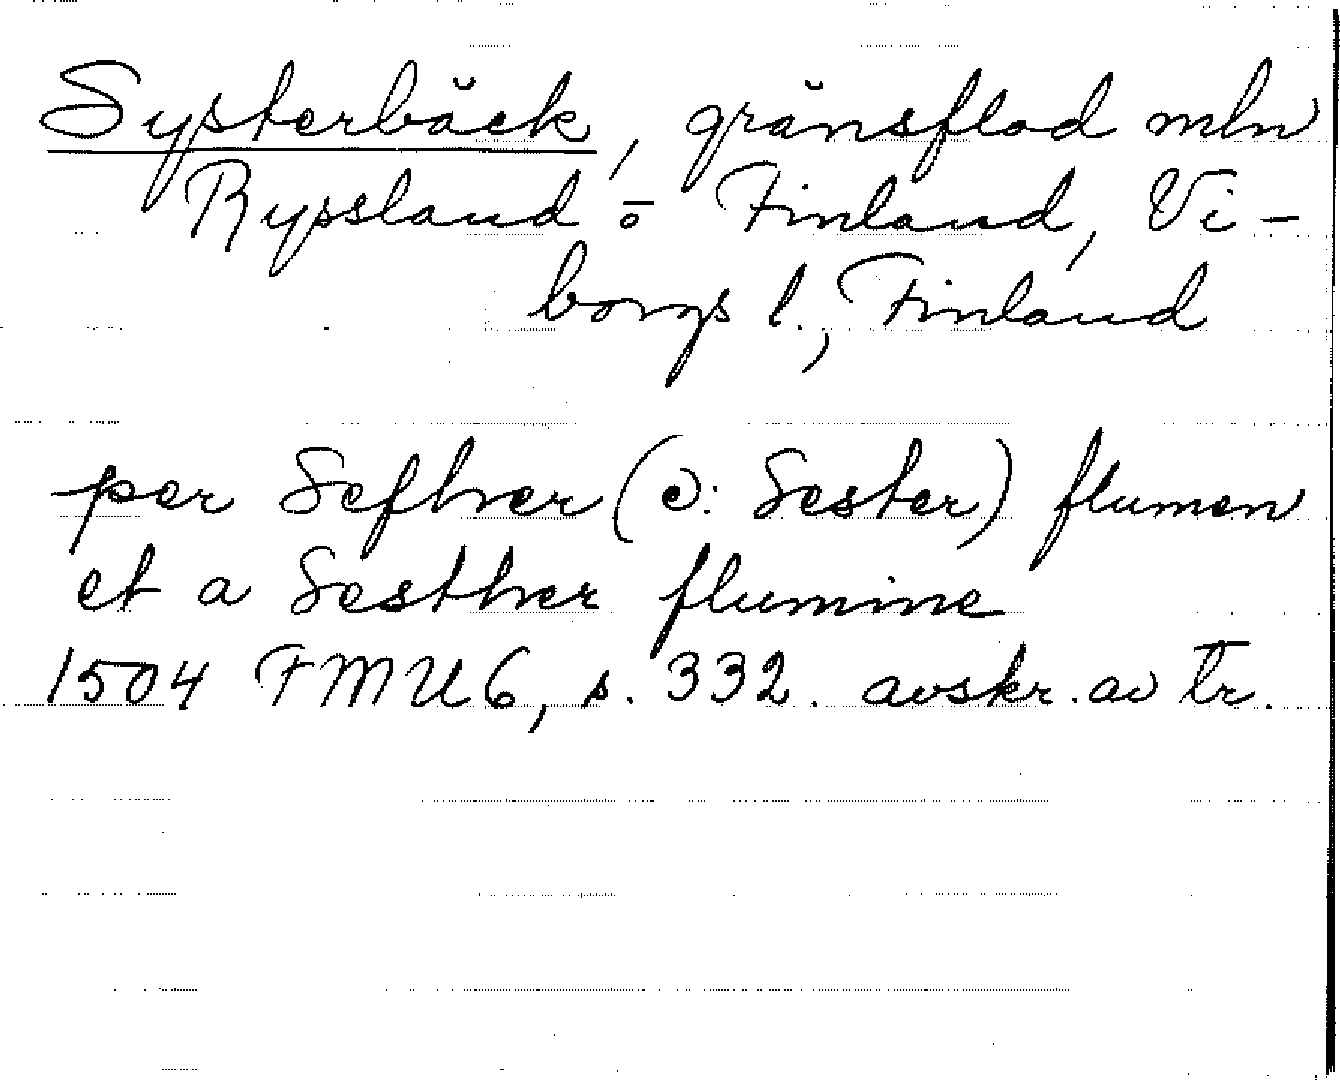 Systerbäck, gränsflod mln
Ryssland o Finland, Vi-
borgs l., Finland
per Sefhver (ɔ: Sester) flumen
et a Sesthver flumine
1504 FMU 6, s. 332. avskr. av tr.